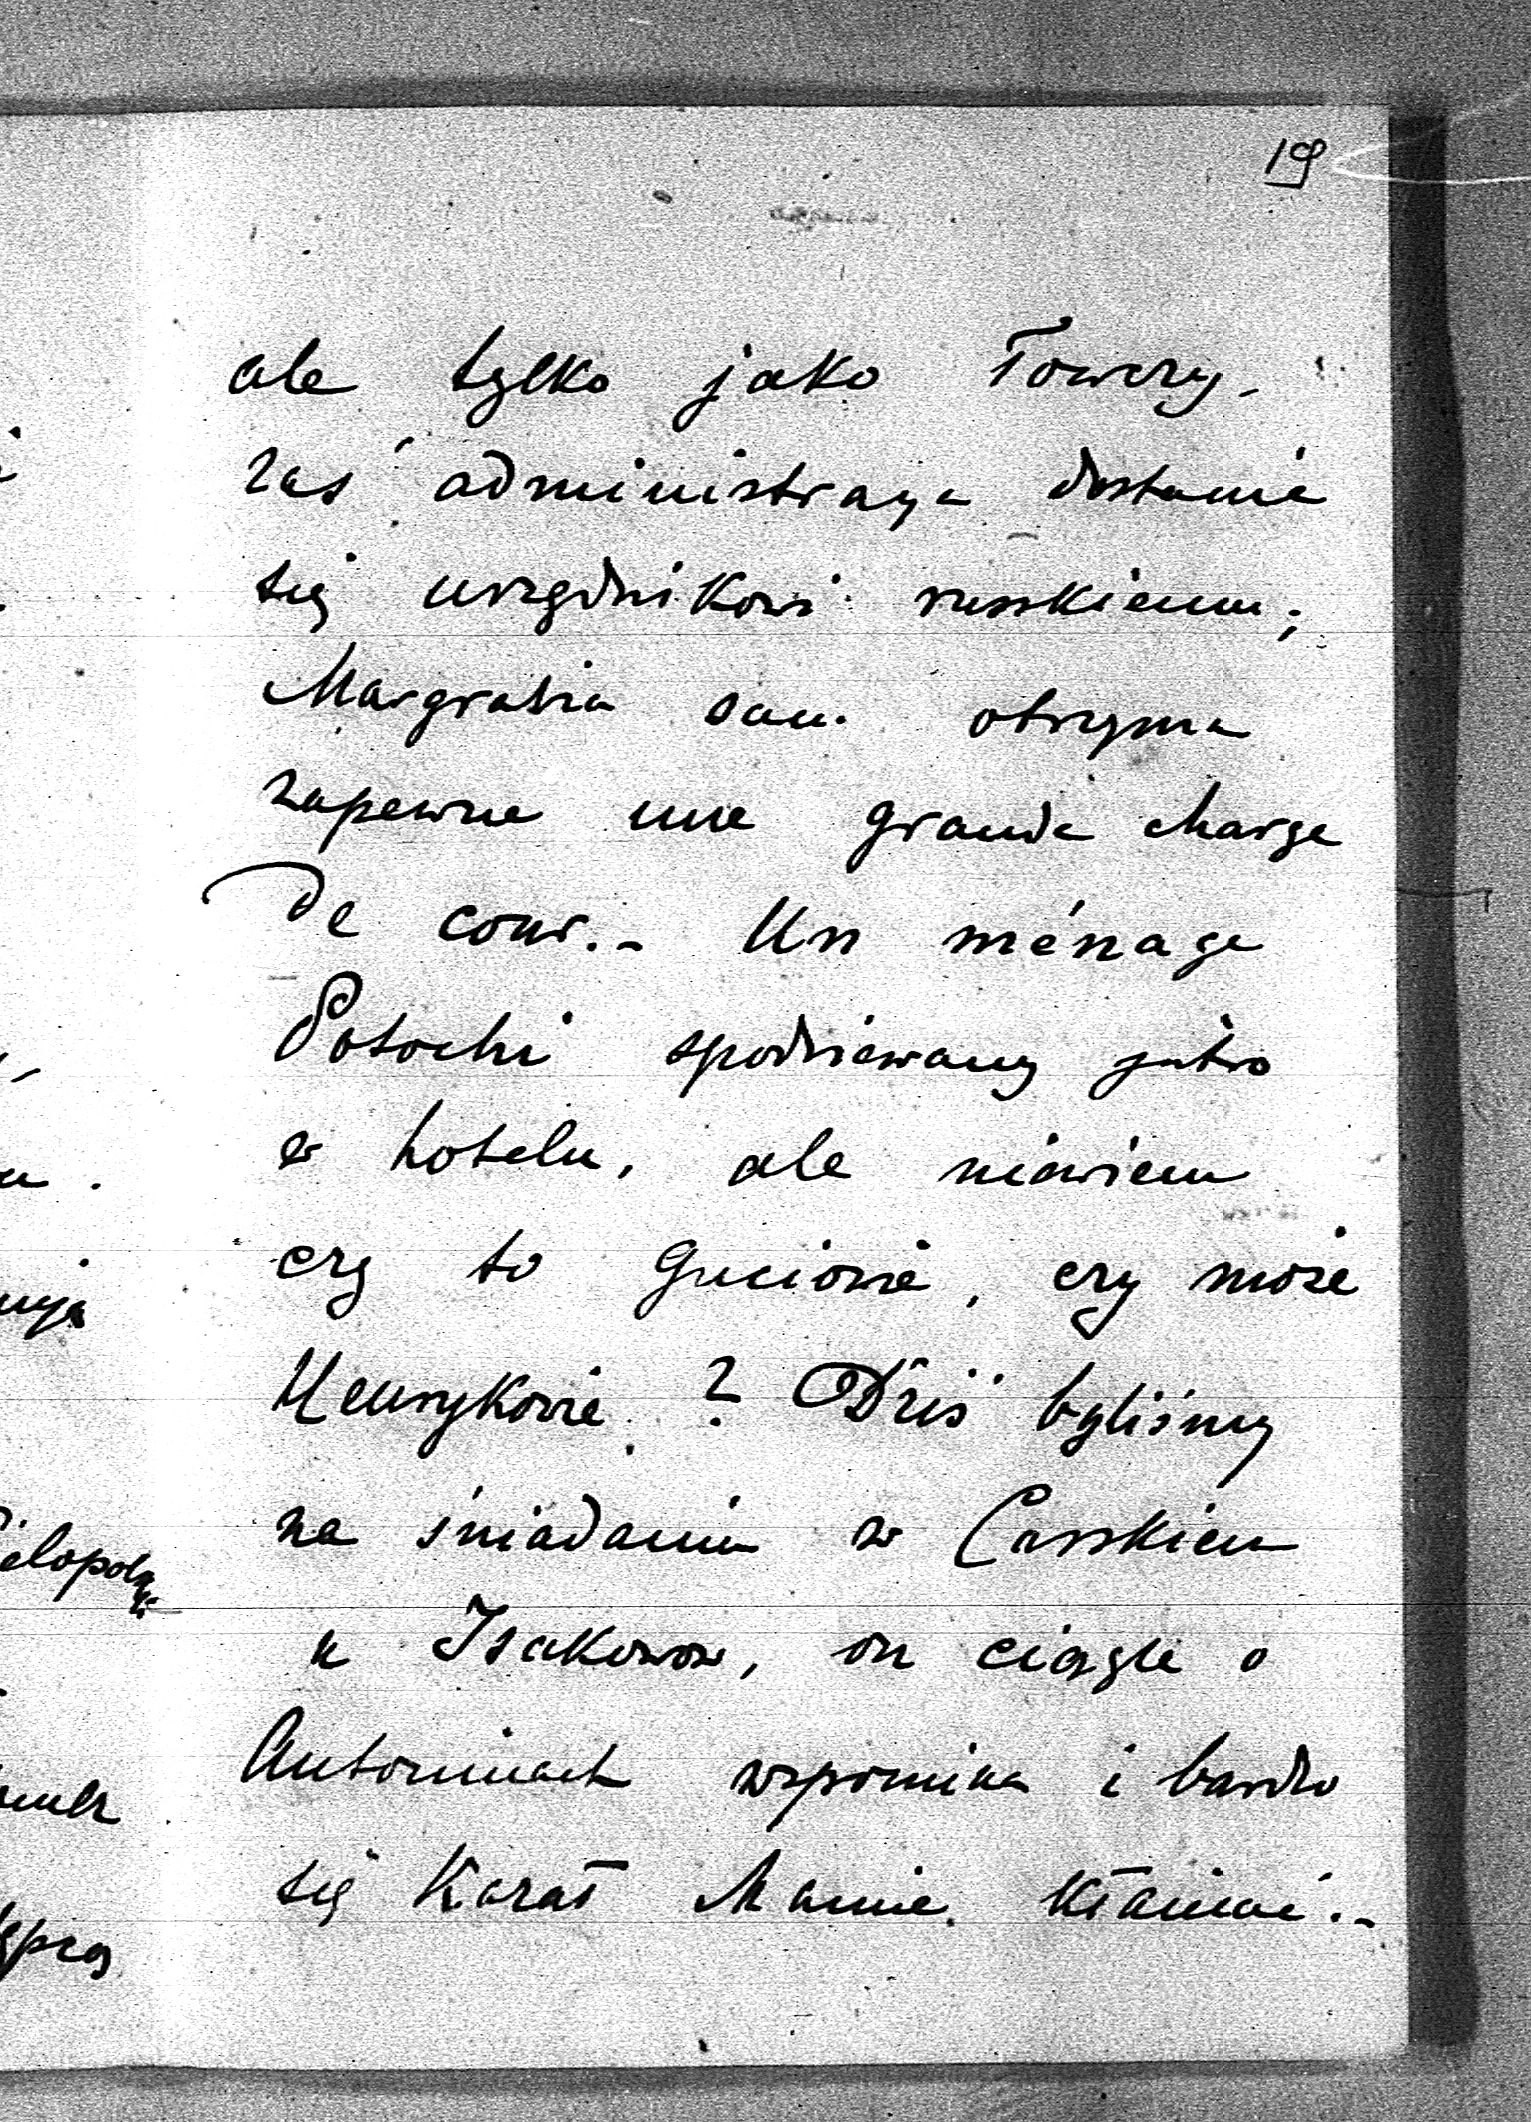 19
ale tylko jako Łowczy,
zaś administracya dostanie
się urzędnikowi russkiemu;
Margrabia sam otrzyma
zapewne une grande charge
de cour.- Un ménage
Potocki spodziewany jutro
w hotelu, ale niewiem
czy to Guciowie, czy może
Henrykowie? Dziś byliśmy
na śniadaniu w Carskiem
u Isakowow, on ciągle o
Antoninach wspomina i bardzo
się kazał Mamie kłaniać.-